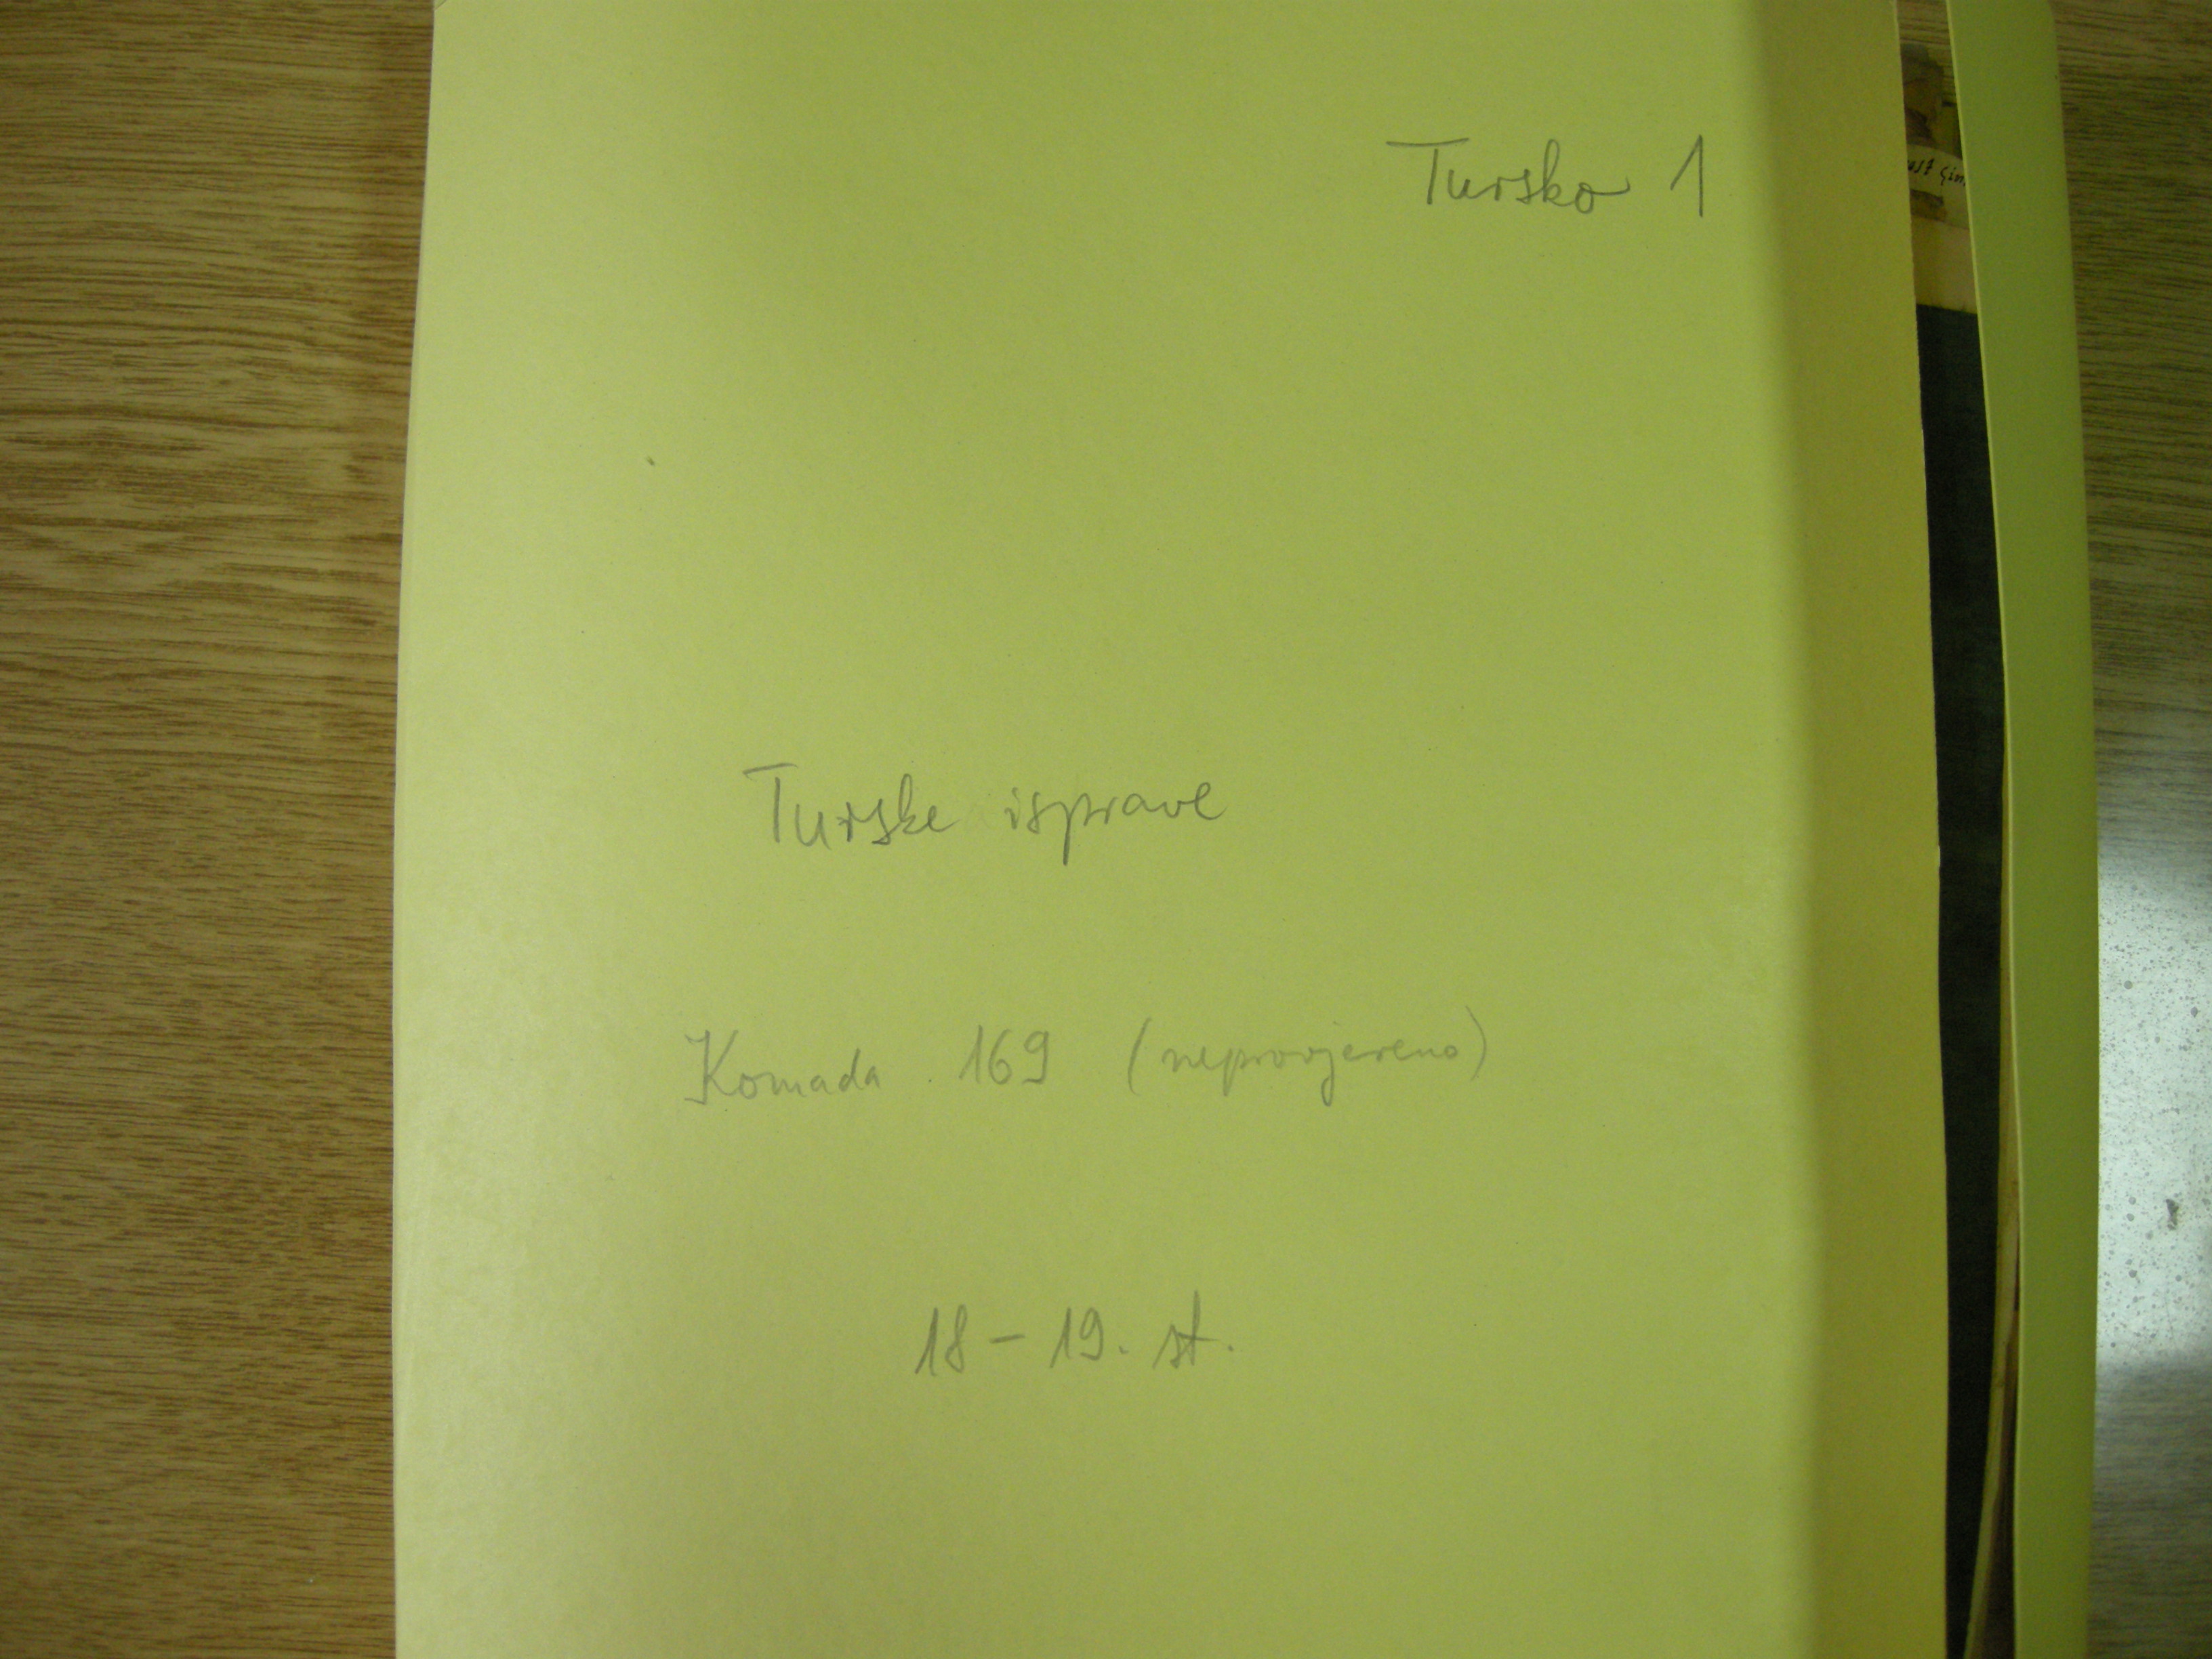 Tursko 1
Turske isprave
Komada 169 (neprovjereno)
18 - 19. st.